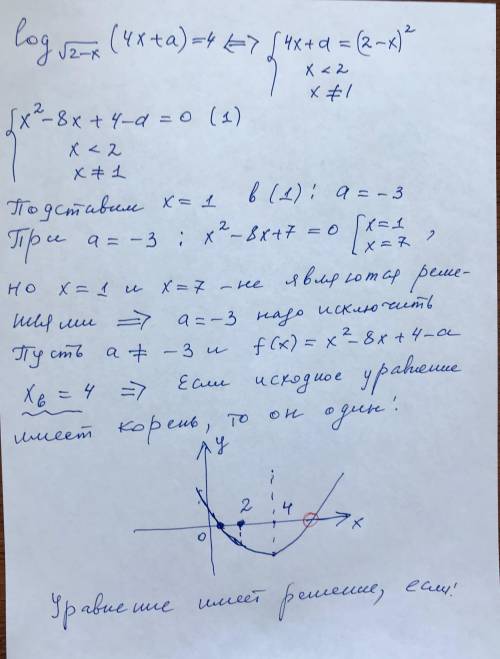 log_{√2-x} (4x+a)=4 ⟺ { 4x+a = (2-x)²
x < 2
x ≠ 1
{ x² - 8x + 4 - a = 0 (1)
x < 2
x ≠ 1
Подставим x = 1 в (1): a = -3
При a = -3 : x² - 8x + 7 = 0 [ x=1
x=7 ,
но x = 1 и x = 7 - не являются реше-
ниями ⟹ a = -3 надо исключить
Пусть a ≠ -3 и f(x) = x² - 8x + 4 - a
x_в = 4 ⟹ Если исходное уравнение
имеет корень, то он один!
y
0 2 4 x
Уравнение имеет решение, если: